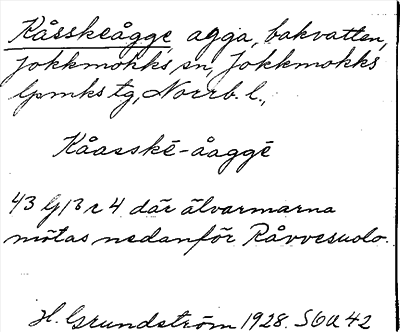 Kåsskeågge, agga, bakvatten,
Jokkmokks sn, Jokkmokks
lpmks tg, Norrb. l.,
Kåasskē-åaggē
43 G/B r 4 där älvarmarna
mötas nedanför Råvvesuolo.
H. Grundström 1928. SOU 42